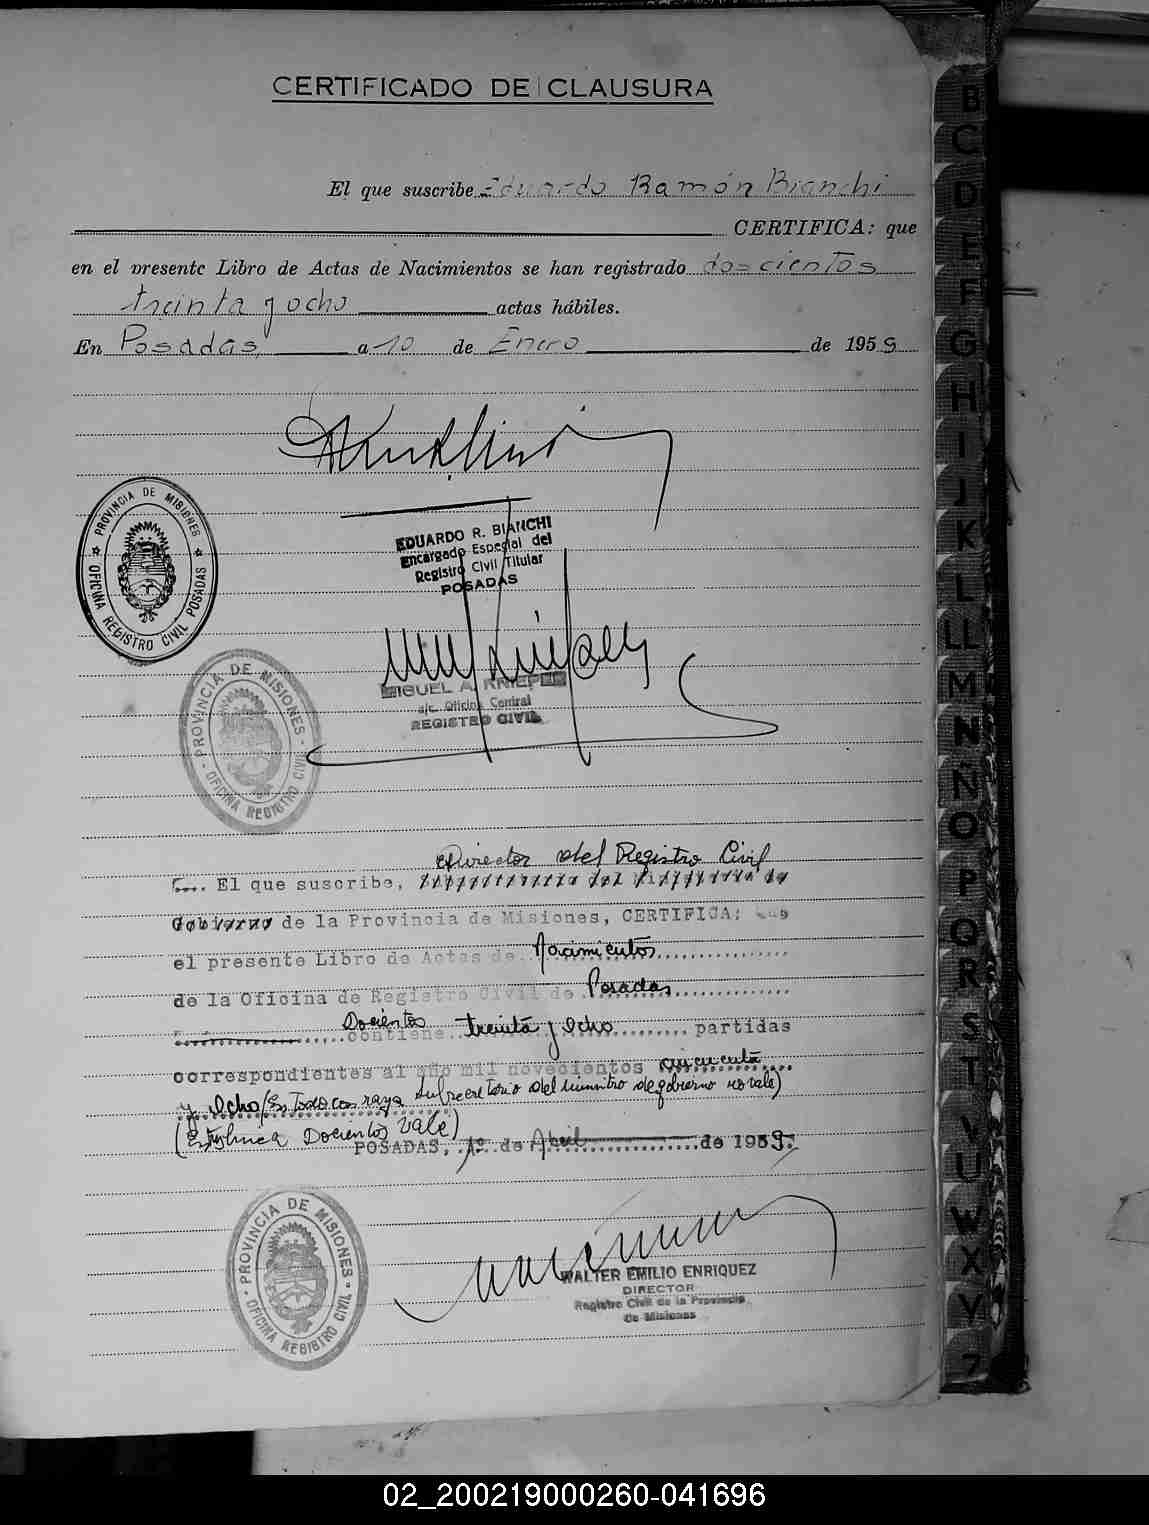 CERTIFICADO DE CLAUSURA
El que suscribe Eduardo Ramón Bianchi
CERTIFICA: que
en el presente Libro de Actas de Nacimientos se han registrado doscientos
treinta y ocho actas hábiles.
En Posadas, a 10 de Enero de 1959
PROVINCIA DE MISIONES
OFICINA REGISTRO CIVIL POSADAS
EDUARDO R. BIANCHI
Encargado Especial del
Registro Civil Titular
POSADAS
PROVINCIA DE MISIONES
OFICINA REGISTRO CIVIL
MIGUEL A. KNIEPER
a/c. Oficina Central
REGISTRO CIVIL
Director del Registro Civil
El que suscribe,
Gobierno de la Provincia de Misiones, CERTIFICA: Que
el presente Libro de Actas de Nacimientos
de la Oficina de Registro Civil de Posadas
Docientos
contiene treinta y Ocho partidas
correspondientes al año mil novecientos cincuenta
y Ocho (Es Todo con raya Subsecretario del Ministro de gobierno no vale)
(Entrelinea Docientos Vale)
POSADAS, 1º de Abril de 1959.
PROVINCIA DE MISIONES
OFICINA REGISTRO CIVIL
WALTER EMILIO ENRIQUEZ
DIRECTOR
Registro Civil de la Provincia
de Misiones
B
C
D
E
F
G
H
I
J
K
L
LL
M
N
Ñ
O
P
Q
R
S
T
U
W
X
Y
Z
02_200219000260-041696